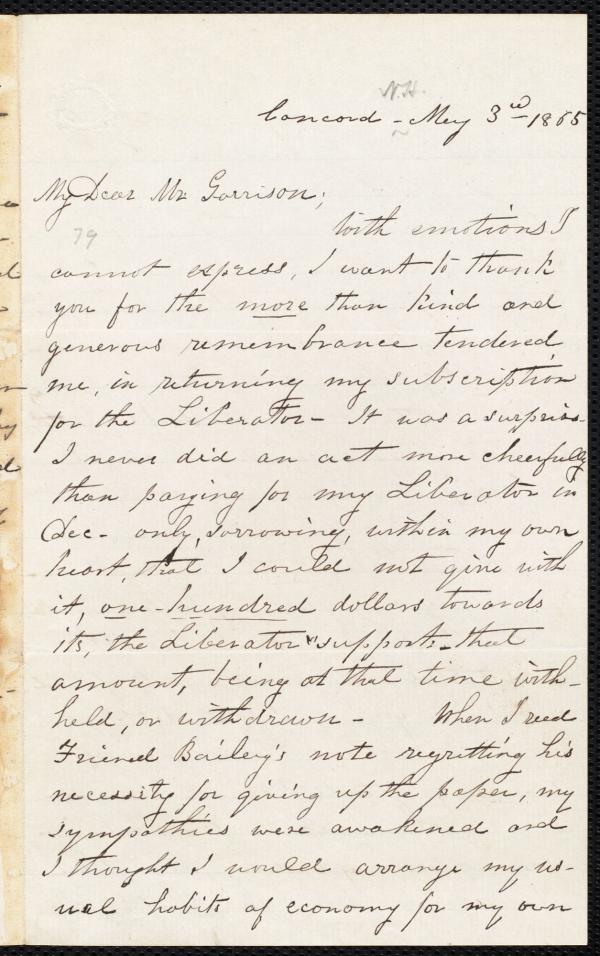 N.H.
Concord - May 3rd 1865
My Dear Mr Garrison;
79
With emotions I
cannot express, I want to thank
you for the more than kind and
generous remembrance tendered
me, in returning my subscription
for the Liberator - It was a surprise.
I never did an act more cheerfully
than paying for my Liberator in
Dec - only, sorrowing, within my own
heart, that I could not give with
it, one-hundred dollars towards
its, the Liberator's support - that
amount, being at that time with-
held, or withdrawn - When I read
Friend Bailey's note regretting his
necessity for giving up the paper, my
sympathies were awakened and
I thought I would arrange my us-
ual habits of economy for my own